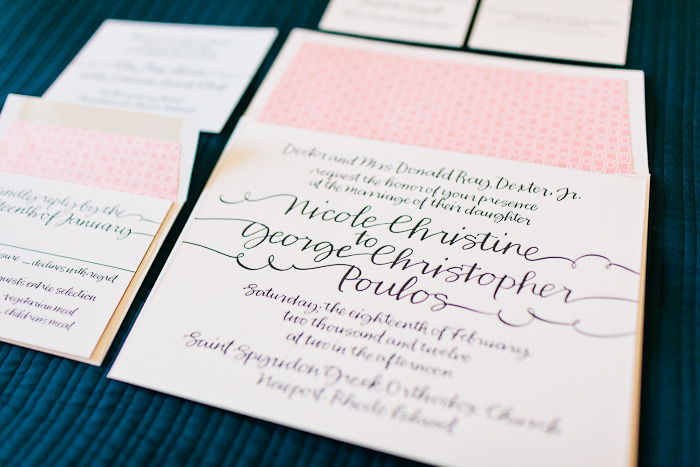 Doctor and Mrs. Donald Ray Dexter, Jr.
request the honor of your presence
at the marriage of their daughter
Nicole Christine
to
George Christopher
Poulos
Saturday, the eighteenth of February
two thousand and twelve
at two in the afternoon
Saint Spyridon Greek Orthodox Church
Newport, Rhode Island
kindly reply by the
teenth of January
sure declines with regret
guest's entrée selection
vegetarian meal
children's meal